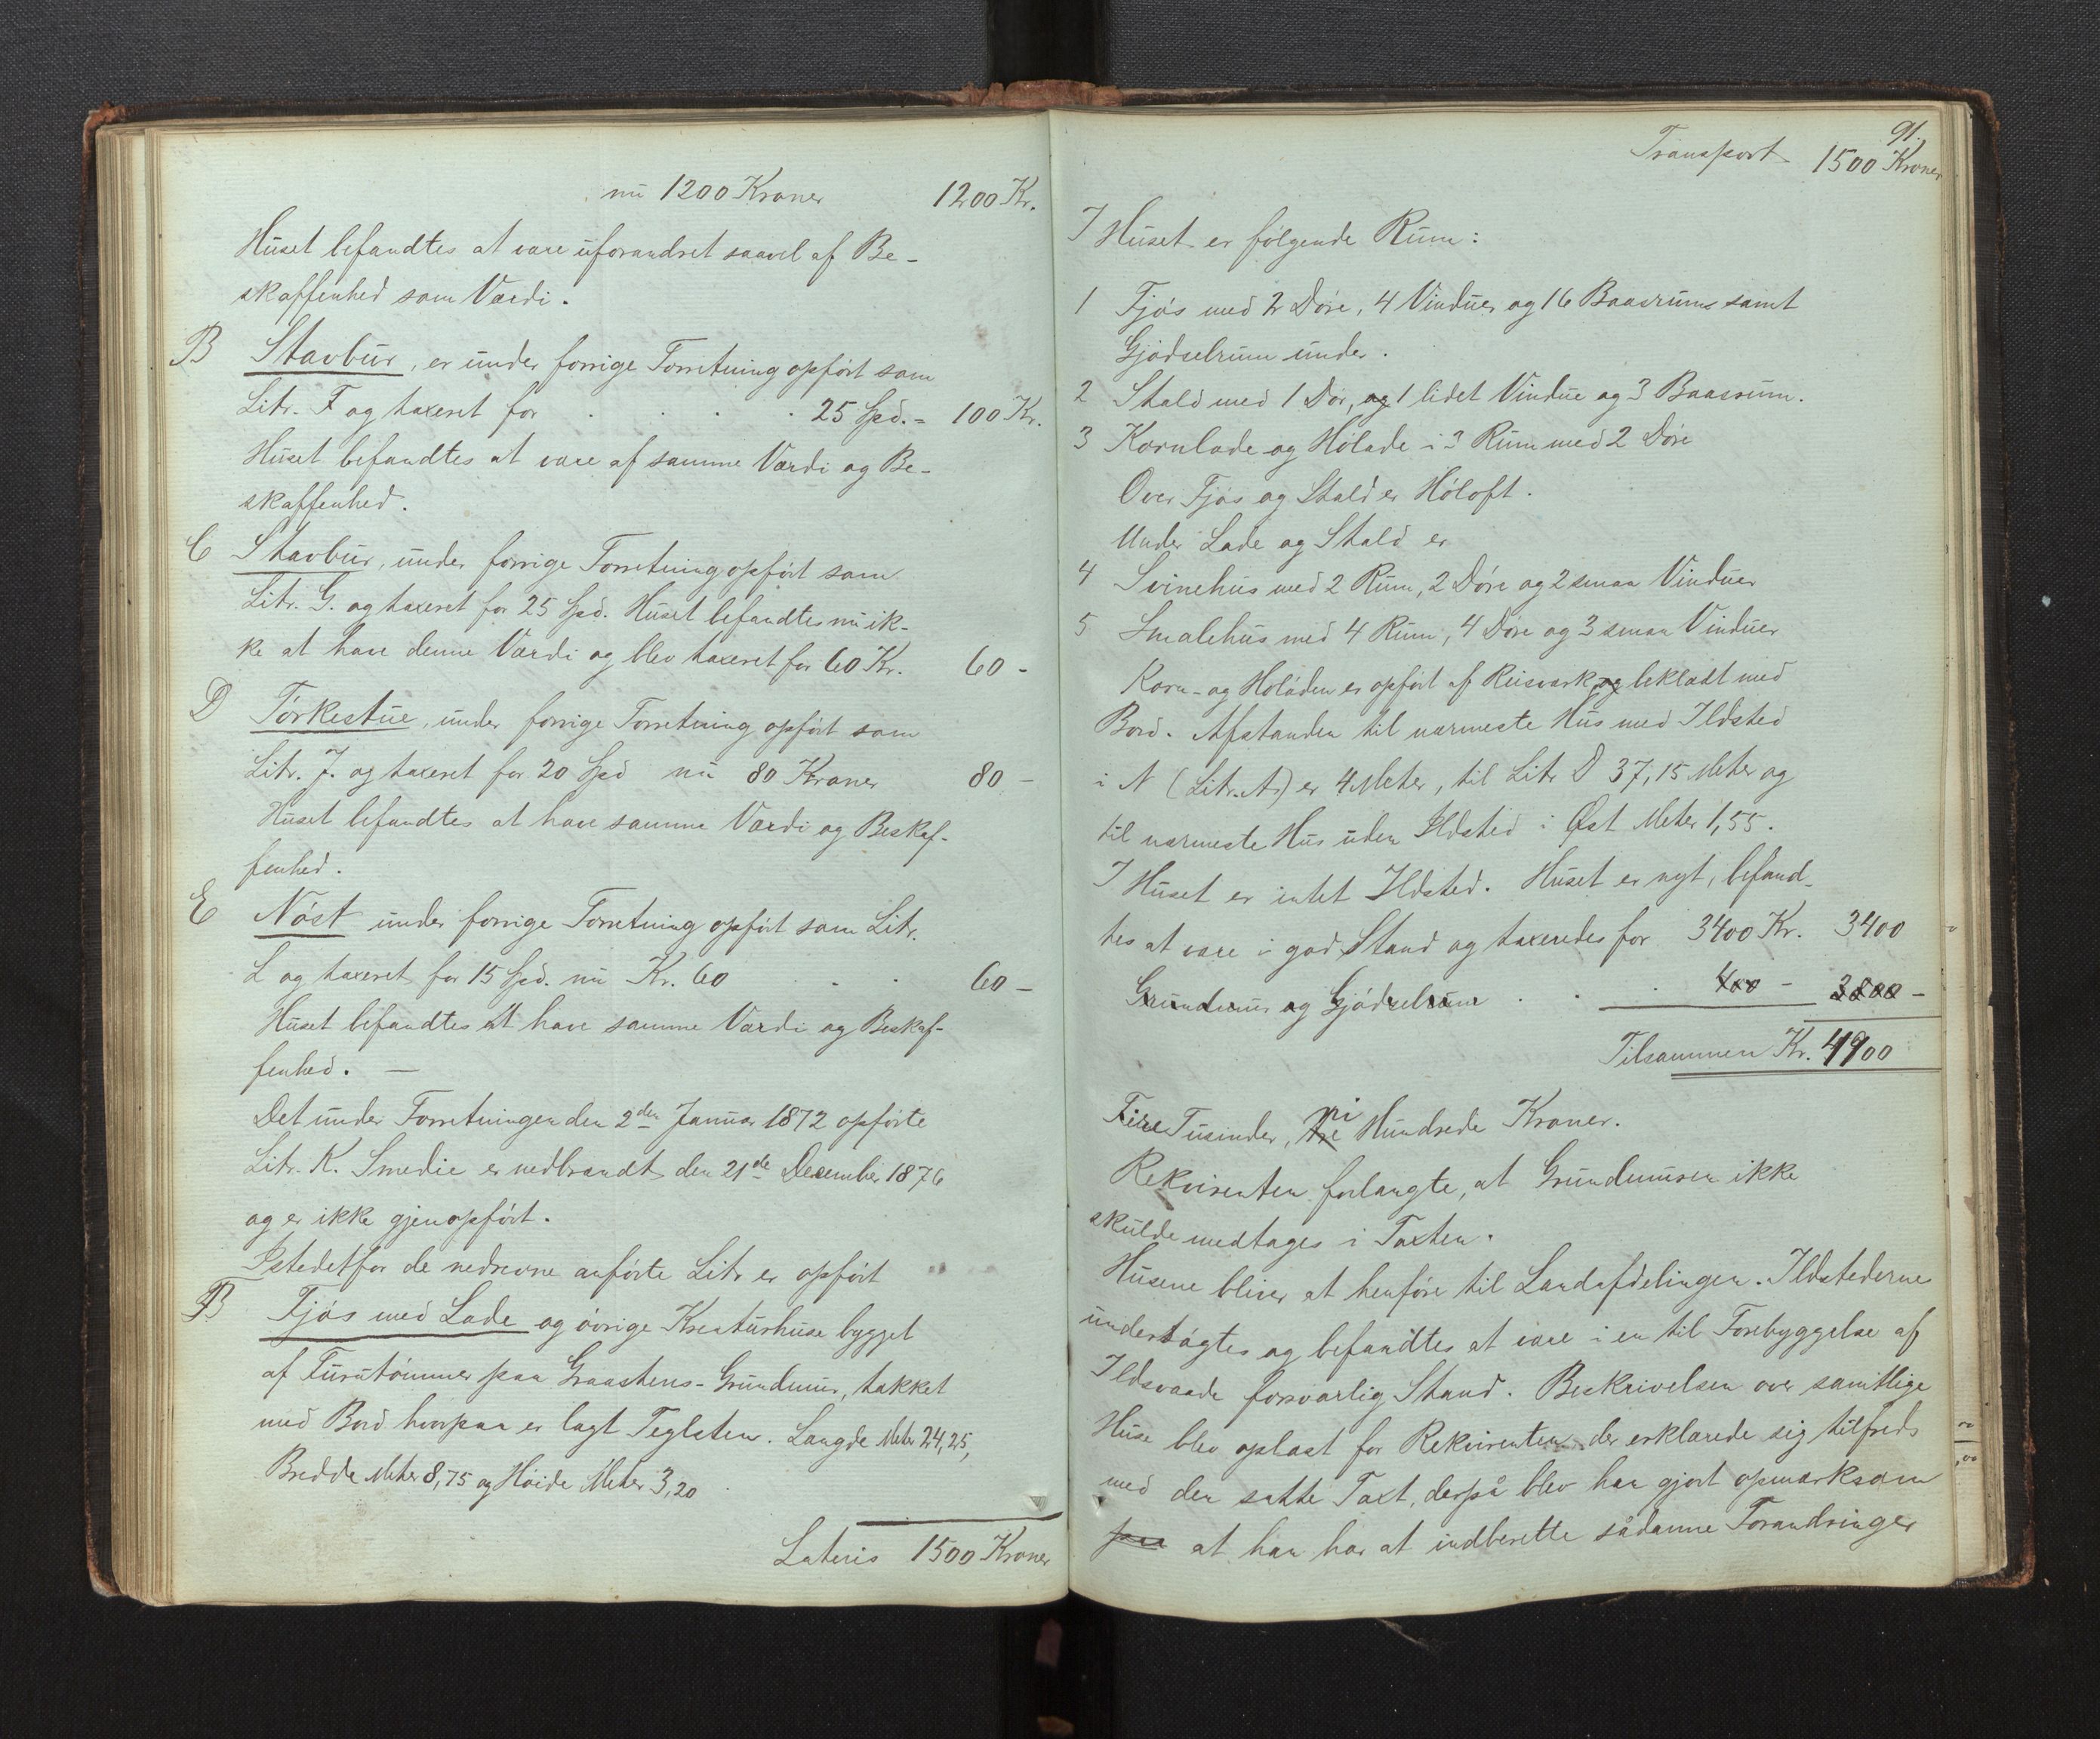 nu 1200 Kroner 1200 Kr.
Huset befandtes at være uforandret saavel af Be-
skaffenhed som Værdi.
B Stavbur, er under forrige Forretning opført som
Litr. F og taxeret for . . . . 25 Spd. = 100 Kr.
Huset befandtes at være af samme Værdi og Be-
skaffenhed.
C Stavbur, under forrige Forretning opført som
Litr. G. og taxeret for 25 Spd. Huset befandtes nu ik-
ke at have denne Værdi og blev taxeret for 60 Kr. 60 -
D Tørkestue, under forrige Forretning opført som
Litr. J. og taxeret for 20 Spd nu 80 Kroner 80 -
Huset befandtes at have samme Værdi og Beskaf-
fenhed.
E Nøst under forrige Forretning opført som Litr.
L og taxeret for 15 Spd. nu Kr. 60 . . . 60 -
Huset befandtes at have samme Værdi og Beskaf-
fenhed. —
Det under Forretningen den 2den Januar 1872 opførte
Litr. K. Smedie er nedbrændt den 21de December 1876
og er ikke gjenopført.
Istedetfor de nedrevne anførte Litr er opført
F Fjøs med Lade og øvrige Kreaturhuse bygget
af Furutømmer paa Graastens-Grundmur, takket
med Bord hvorpaa er lagt Teglsten. Længde Meter 24,25,
Bredde Meter 8,75 og Høide Meter 3,20
Lateris 1500 Kroner
91.
Transport 1500 Kroner
I Huset er følgende Rum:
1 Fjøs med 2 Døre, 4 Vinduer og 16 Baasrum samt
Gjødselrum under.
2 Stald med 1 Dør, og 1 lidet Vindue og 3 Baasrum.
3 Kornlade og Hølade i 3 Rum med 2 Døre
Over Fjøs og Stald er Høloft.
Under Lade og Stald er
4 Svinehus med 2 Rum, 2 Døre og 2 smaa Vinduer
5 Smalehus med 4 Rum, 4 Døre og 3 smaa Vinduer
Korn- og Høladen er opført af Reisværk og beklædt med
Bord. Afstanden til nærmeste Hus med Ildsted
i N (Litr. A) er 4 Meter, til Litr D 37,15 Meter og
til nærmeste Hus uden Ildsted i Øst Meter 1,55.
I Huset er intet Ildsted. Huset er nyt, befand-
tes at være i god Stand og taxeredes for 3400 Kr. 3400
Grundmur og Gjødselrum . . . 400 - 3800 -
Tilsammen Kr. 4900
Fire Tusinder, tre ni Hundrede Kroner.
Rekvirenten forlangte, at Grundmuren ikke
skulde medtages i Taxten.
Husene bliver at henføre til Landafdelingen. Ildstederne
undersøgtes og befandtes at være i en til Forebyggelse af
Ildsvaade forsvarlig Stand. Beskrivelsen over samtlige
Huse blev oplæst for Rekvirenten der erklærede sig tilfreds
med den satte Taxt, derpå blev han gjort opmærksom
paa at han har at indberette sådanne Forandringer